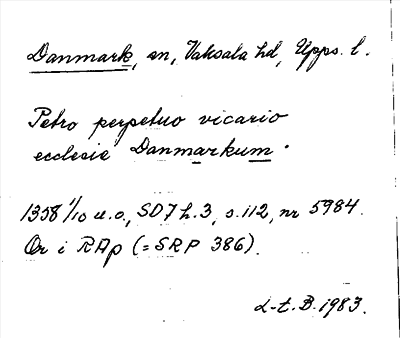 Danmark, sn, Vaksala hd, Upps. l.
Petro perpetuo vicario
ecclesie Danmarkum.
1358 1/10 u.o., SD7 h.3, s.112, nr 5984.
Or i RAp (=SRP 386).
L-t. B. 1983.